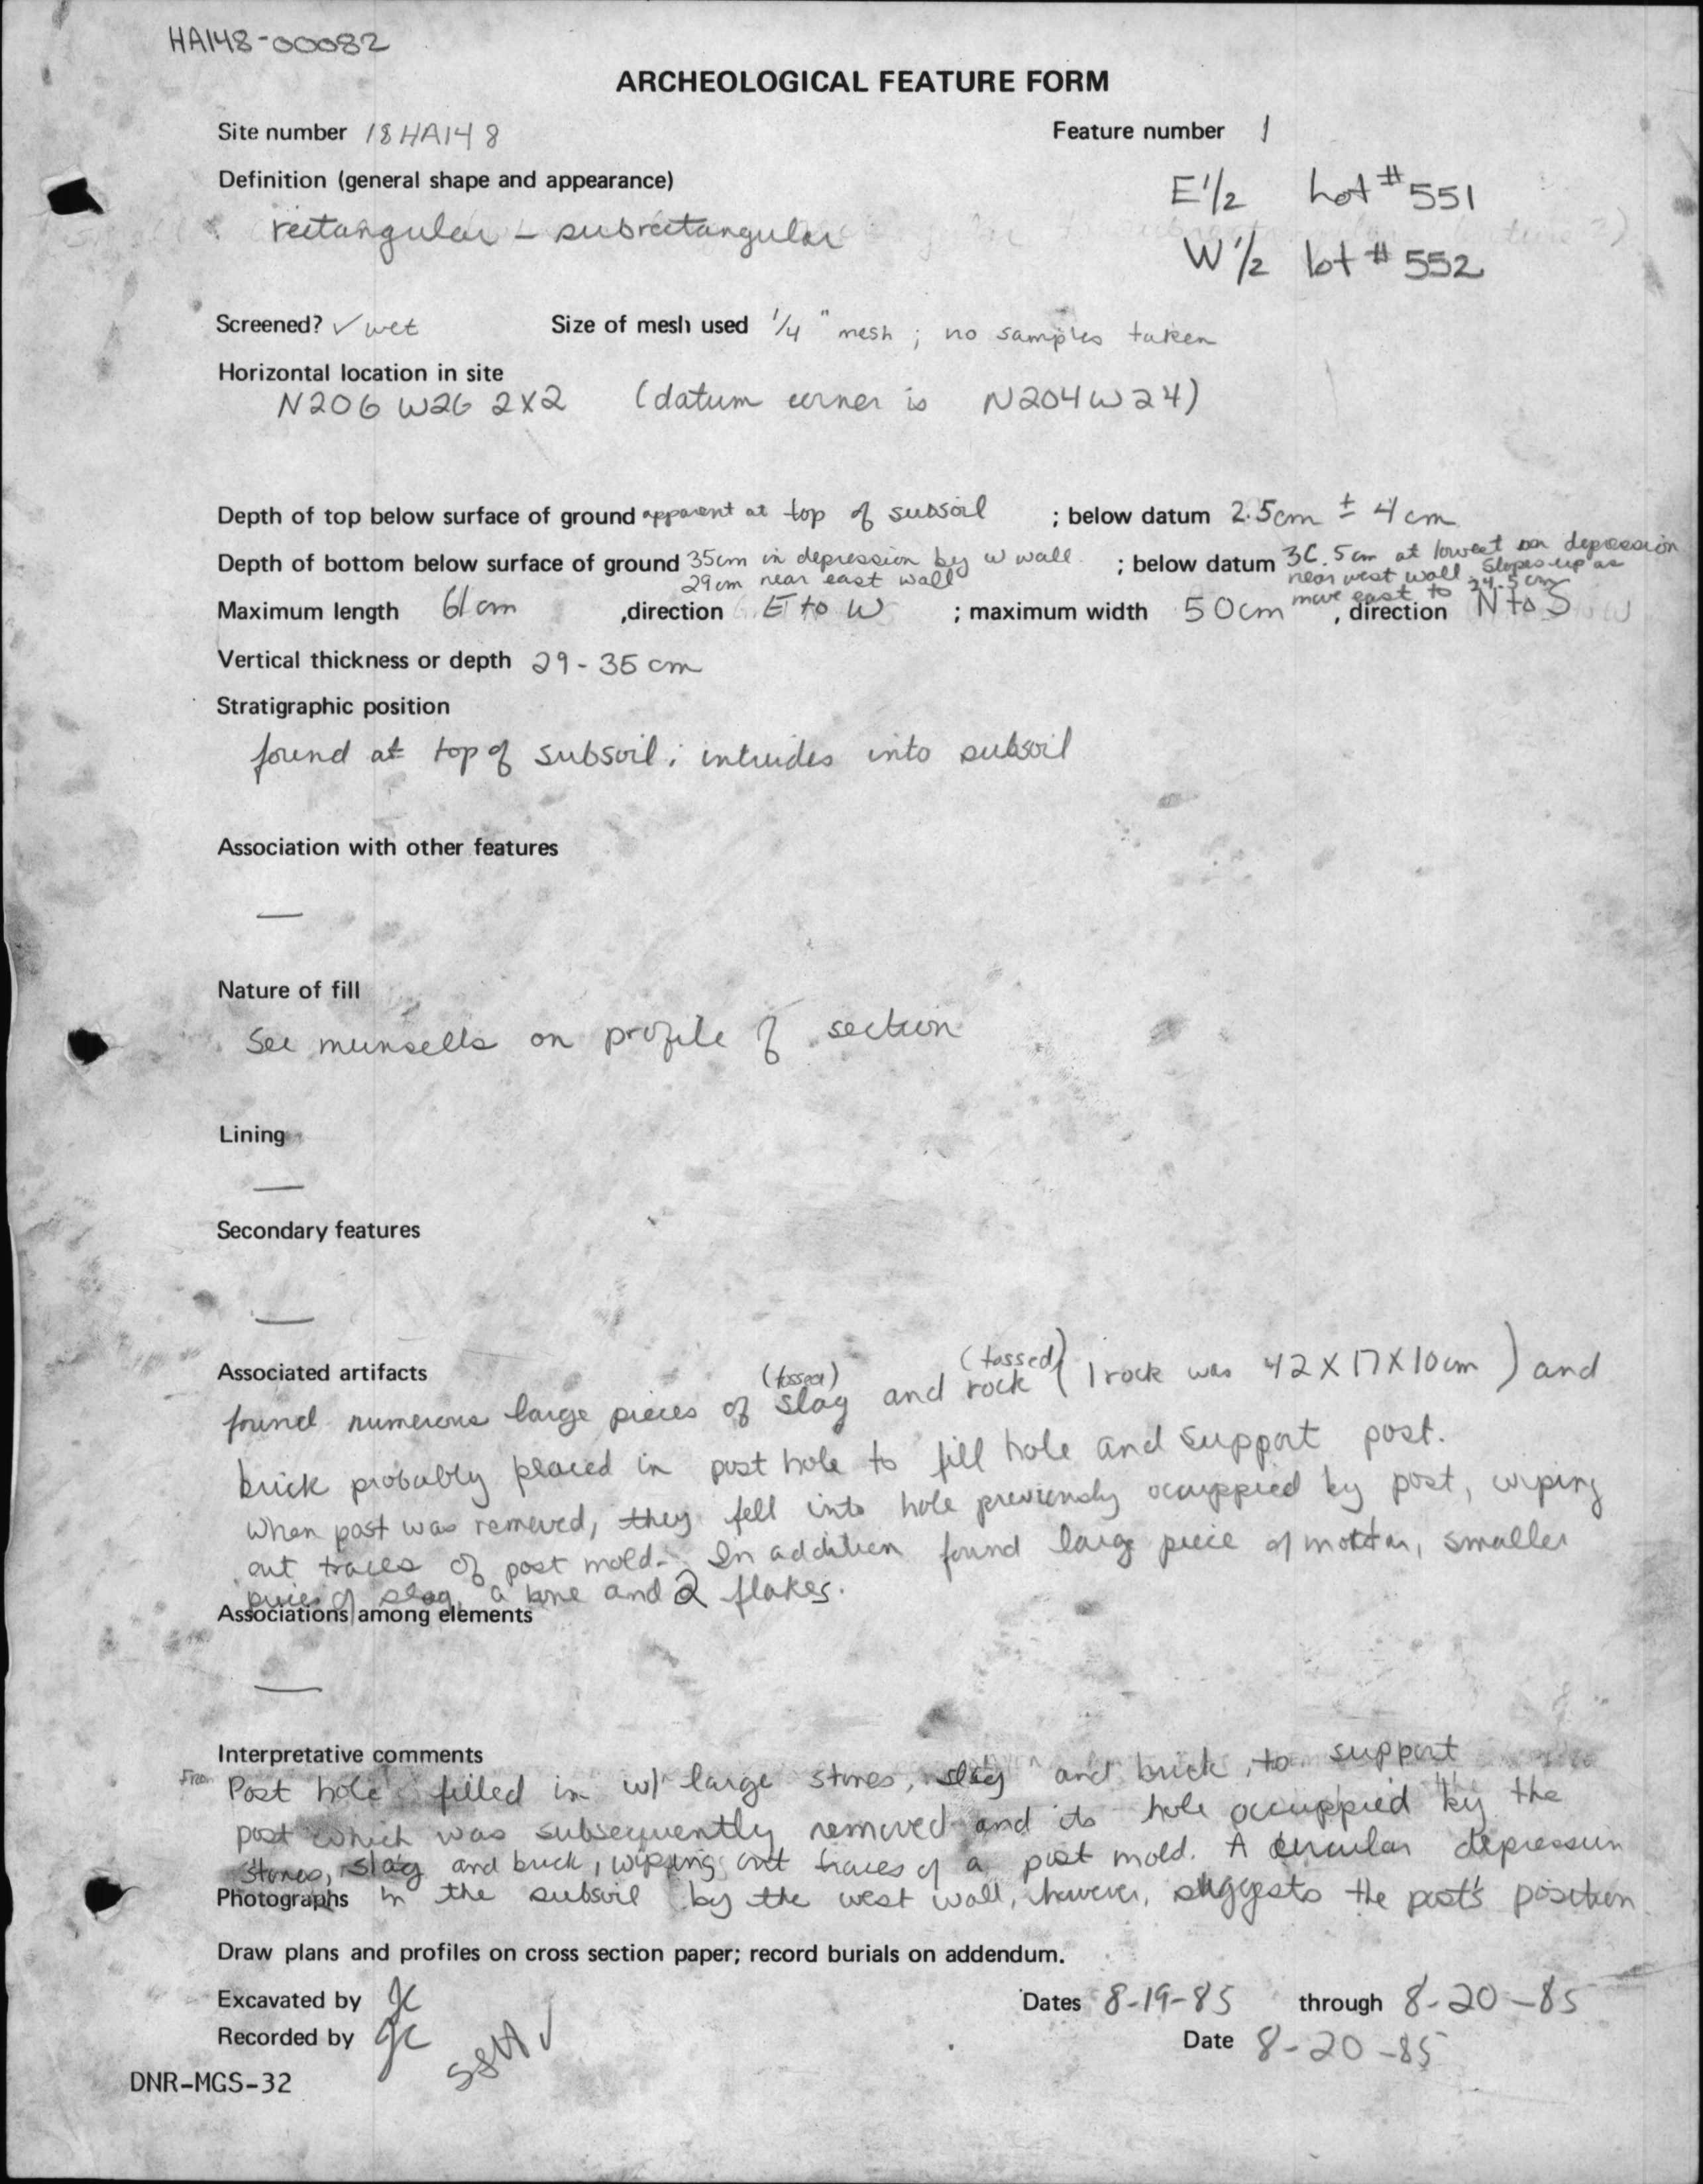 HA148-00082
ARCHEOLOGICAL FEATURE FORM
Site number 18HA148 Feature number 1
Definition (general shape and appearance) E 1/2 Lot # 551
rectangular - subrectangular
W 1/2 lot # 552
Screened? ✓ wet Size of mesh used 1/4" mesh ; no samples taken
Horizontal location in site
N206 W26 2X2 (datum corner is N204W24)
Depth of top below surface of ground apparent at top of subsoil ; below datum 2.5cm ± 4cm
Depth of bottom below surface of ground 35cm in depression by w wall ; below datum 36.5cm at lowest in depression
29cm near east wall near west wall, slopes up as
move east to 34.5cm
Maximum length 61 cm ,direction E to W ; maximum width 50cm , direction N to S
Vertical thickness or depth 29-35 cm
Stratigraphic position
found at top of subsoil; intrudes into subsoil
Association with other features
—
Nature of fill
See munsells on profile of section
Lining
—
Secondary features
—
Associated artifacts
found numerous large pieces of (tossed) slag and (tossed) rock (1 rock was 42X17X10cm) and
brick probably placed in post hole to fill hole and support post.
When post was removed, they fell into hole previously occuppied by post, wiping
out traces of post mold. In addition found large piece of mortar, smaller
pieces of slag, a bone and 2 flakes.
Associations among elements
—
Interpretative comments
Post hole filled in w/ large stones, slag and brick, to support
post which was subsequently removed and its hole occuppied by the
stones, slag and brick, wiping out traces of a post mold. A circular depression
Photographs in the subsoil by the west wall, however, suggests the post's position
Draw plans and profiles on cross section paper; record burials on addendum.
Excavated by JC Dates 8-19-85 through 8-20-85
Recorded by JC Date 8-20-85
DNR-MGS-32